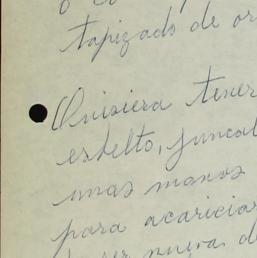 tapizado de or
Quisiera tener
esbelto, juncal
unas manos
para acariciar